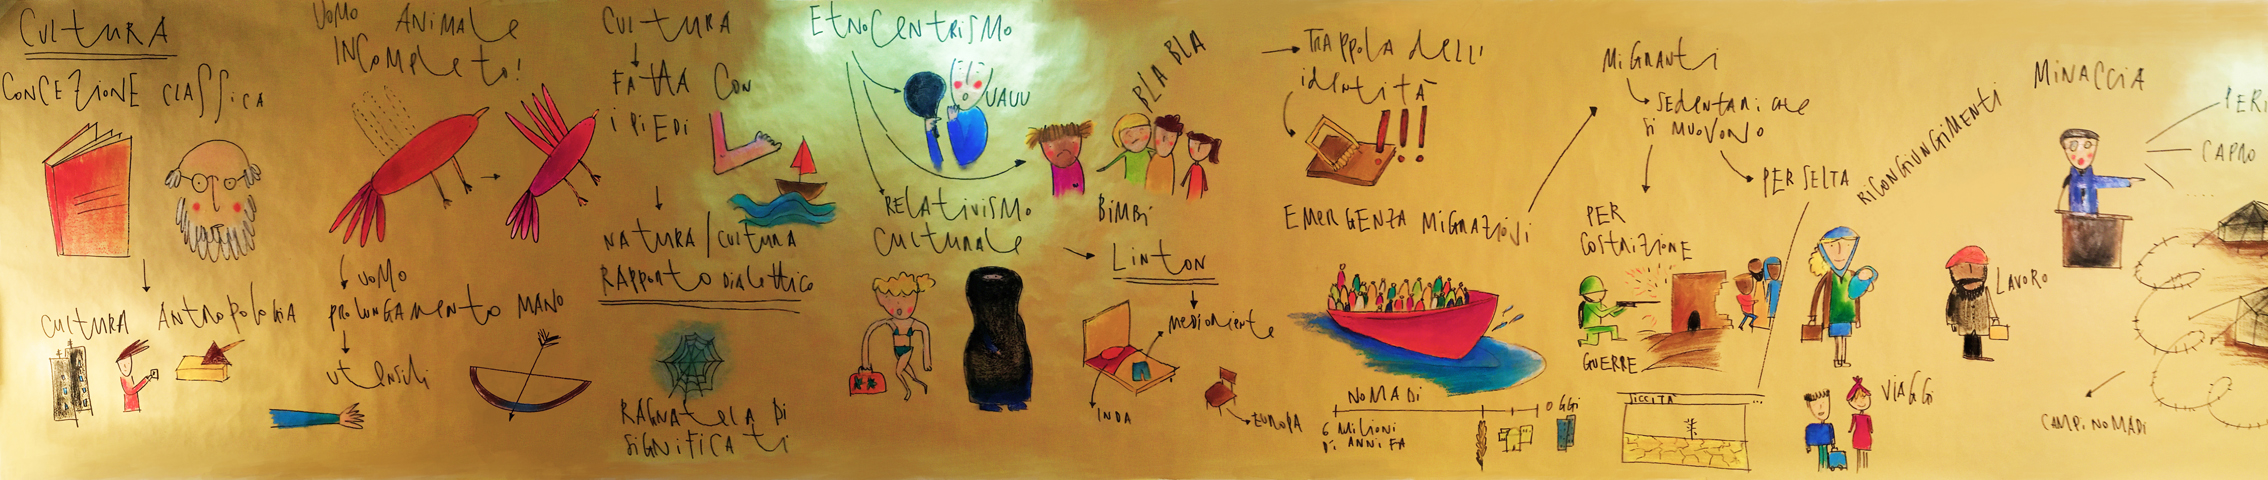 CULTURA
CONCEZIONE CLASSICA
CULTURA ANTROPOLOGIA
UOMO ANIMALE
INCOMPLETO!
UOMO
PROLUNGAMENTO MANO
UTENSILI
CULTURA
FATTA CON
I PIEDI
NATURA/CULTURA
RAPPORTO DIALETTICO
RAGNATELA DI
SIGNIFICATI
ETNOCENTRISMO
UAUU
BLA BLA
BIMBI
RELATIVISMO
CULTURALE
LINTON
MEDIORIENTE
INDA
EUROPA
TRAPPOLA DELL'
IDENTITÀ
!!!
EMERGENZA MIGRAZIONI
NOMADI
6 MILIONI
DI ANNI FA
OGGI
MIGRANTI
SEDENTARI CHE
SI MUOVONO
PER
COSTRIZIONE
GUERRE
SICCITÀ
...
PER SELTA
RICONGIUNGIMENTI
LAVORO
VIAGGI
MINACCIA
PER
CAPRO
....
CAMPI NOMADI